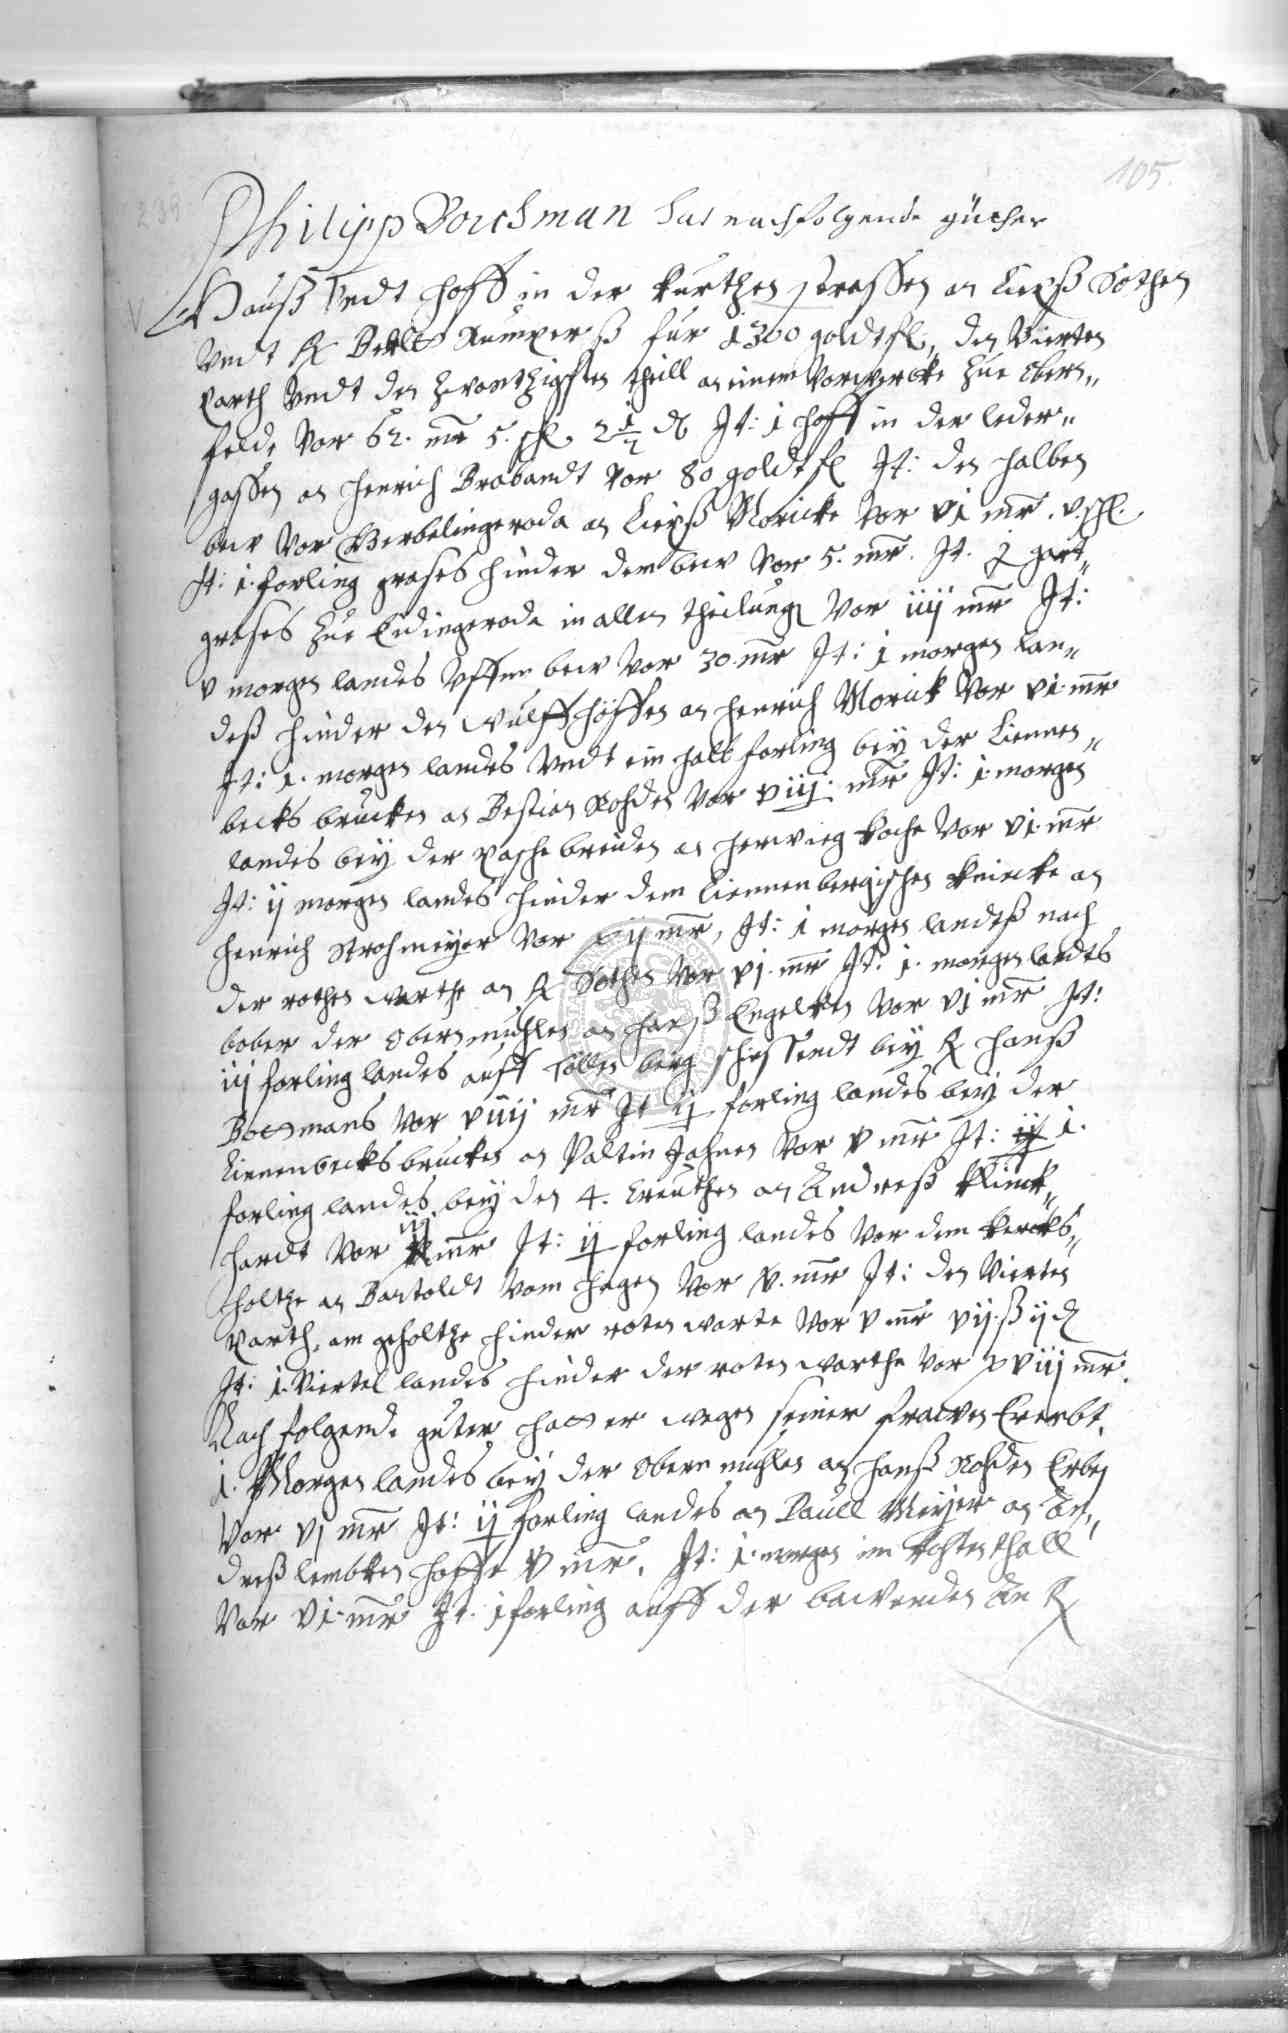 105.
239
Philipp Borchman hat nachfolgende güther
Hauß Vndt hoff in der kurthen strassen an Liepß Bothen
Vndt für 1300 goldtfl, den Vierten
parth Vndt den zwantzigsten theill an einem Vorwercke zue Obern„
felde Vor 62. mr 5. ßl. 2 1/2 d It: 1 hoff in der leder„
gassen an Henrich Brabandt Vor 80 goldtfl It: den halben
bew Vor Werbelingeroda an Liepß Moricke Vor vi mr. v. ßl.
It: 1. forling grases hinder dem bew Vor 5. mr. It. gart„
grases zue Eidingeroda in allen theilung Vor iiij mr It:
v morgen landes Vffm bew Vor 30 mr It: 1 morgen lan„
deß hinder den Wulffhöffen an Henrich Morick Vor vi mr
It: 1. morgen landes Vndt ein halb forling bey der Liennen„
becks brucken an Bestian Rohden Vor viij mr It: 1 morgen
landes bey der pasche breiden an Herwieg Koche Vor vi mr
It: ij morgen landes hinder dem Liennenbergischen knicke an
Henrich Strohmeyer Vor mr, It: 1 morgen landeß nach
der rothen warthe an Bothen Vor vi. mr It: 1. morgen landes
bober der Obern muhlen an Hanß Engelken Vor vi mr It:
iij forling landes auff berg schiessendt bey Hanß
Bormans Vor viiij mr It ij forling landes bey der
Linnenbecksbrucken an Valtin Jahnen Vor v mr It: 1.
forling landes bey den 4. Creuthen an Andreß Klinck„
hardt Vor iij mr It: ij forling landes Vor dem kercks„
holthe an Bartoldt Vom Hagen Vor v. mr It: den Vierten
parth, am geholthe hinder roten warte Vor v mr vij ß ij d
It: 1. Viertel landes hinder der roten warthe Vor xviij mr.
Nach folgende guter hatt er wegen seiner frawen Ererbt.
1. Morgen landes bey der Obern muhlen an Hanß Rohden Erben
Vor vi mr It: ij forling landes an Paull Meyer an An„
dreß lembken hoffe v mr. It: 1. morgen im kohlenthall
Vor vi mr It. 1 forling auff der bawenden An